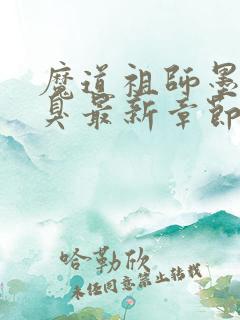 魔道祖师墨
臭最新章節
哈勒欣
未经同意禁止转载